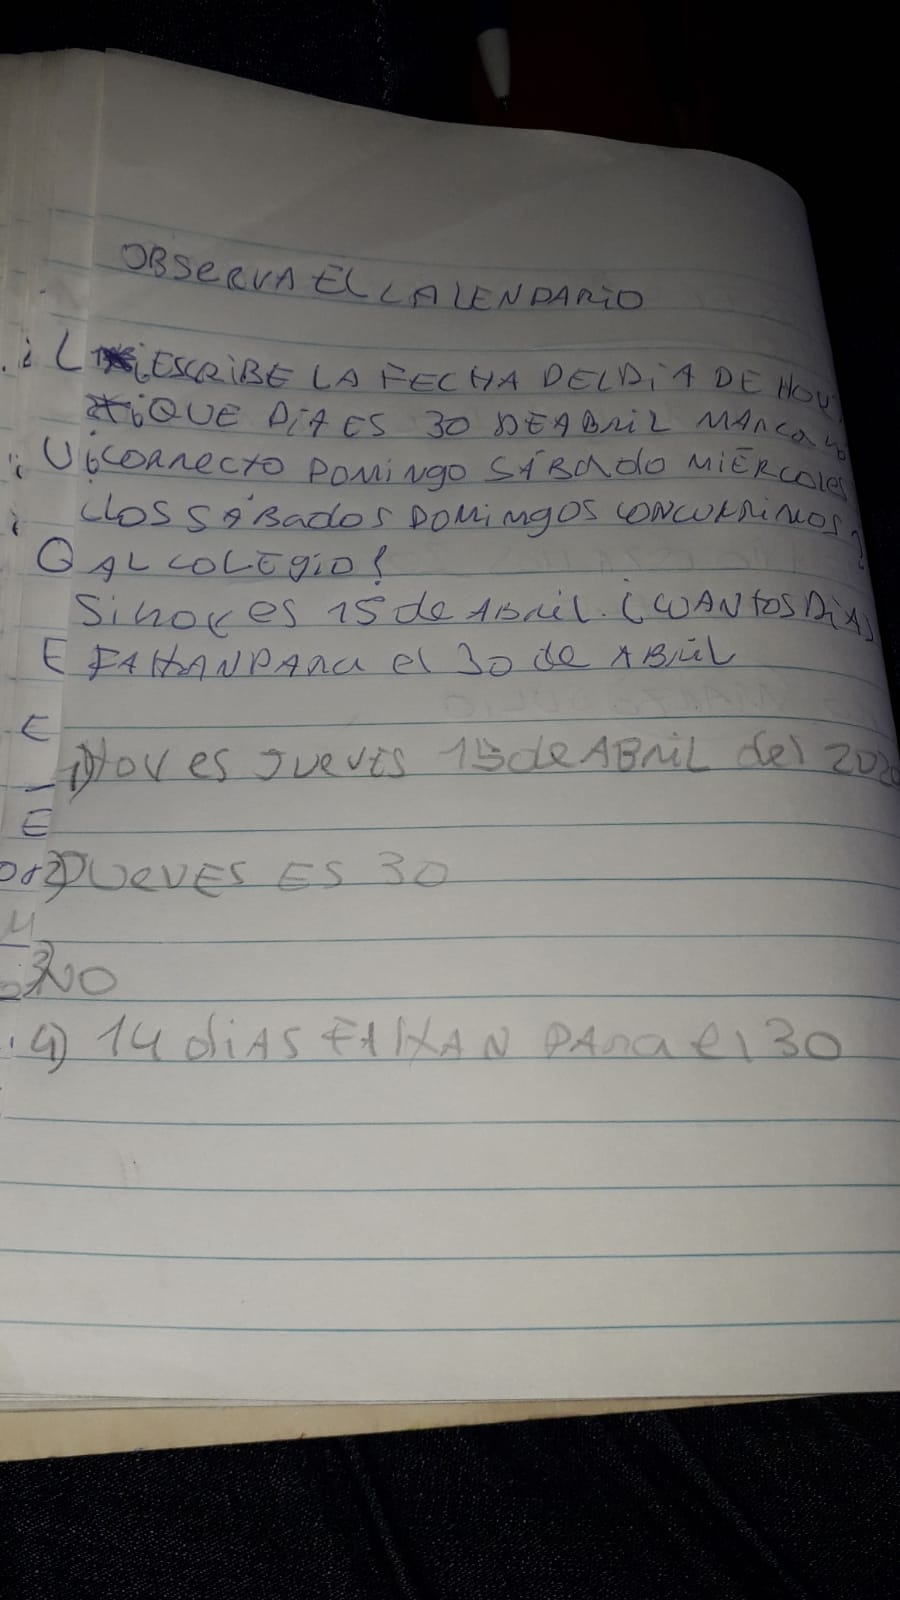 OBSERVA EL CALENDARIO
¿ESCRIBE LA FECHA DEL DiA DE HOY
¿QUE DiA ES 30 DE ABRIL MARCA LO
CORRECTO DOMiNgO SÁBAdo MiÉRCOLES
¿LOS SÁBados DOMiNgOS CONCURRIMOS
AL COLEGiO?
Si hoy es 15 de ABRiL. ¿CUANTOS DiAS
FALTAN PARA el 30 de ABRiL
1) HOY es JUEVES 15 de ABRiL del 202
2) JUEVES ES 30
3) NO
4) 14 diAS FALTAN PARA el 30